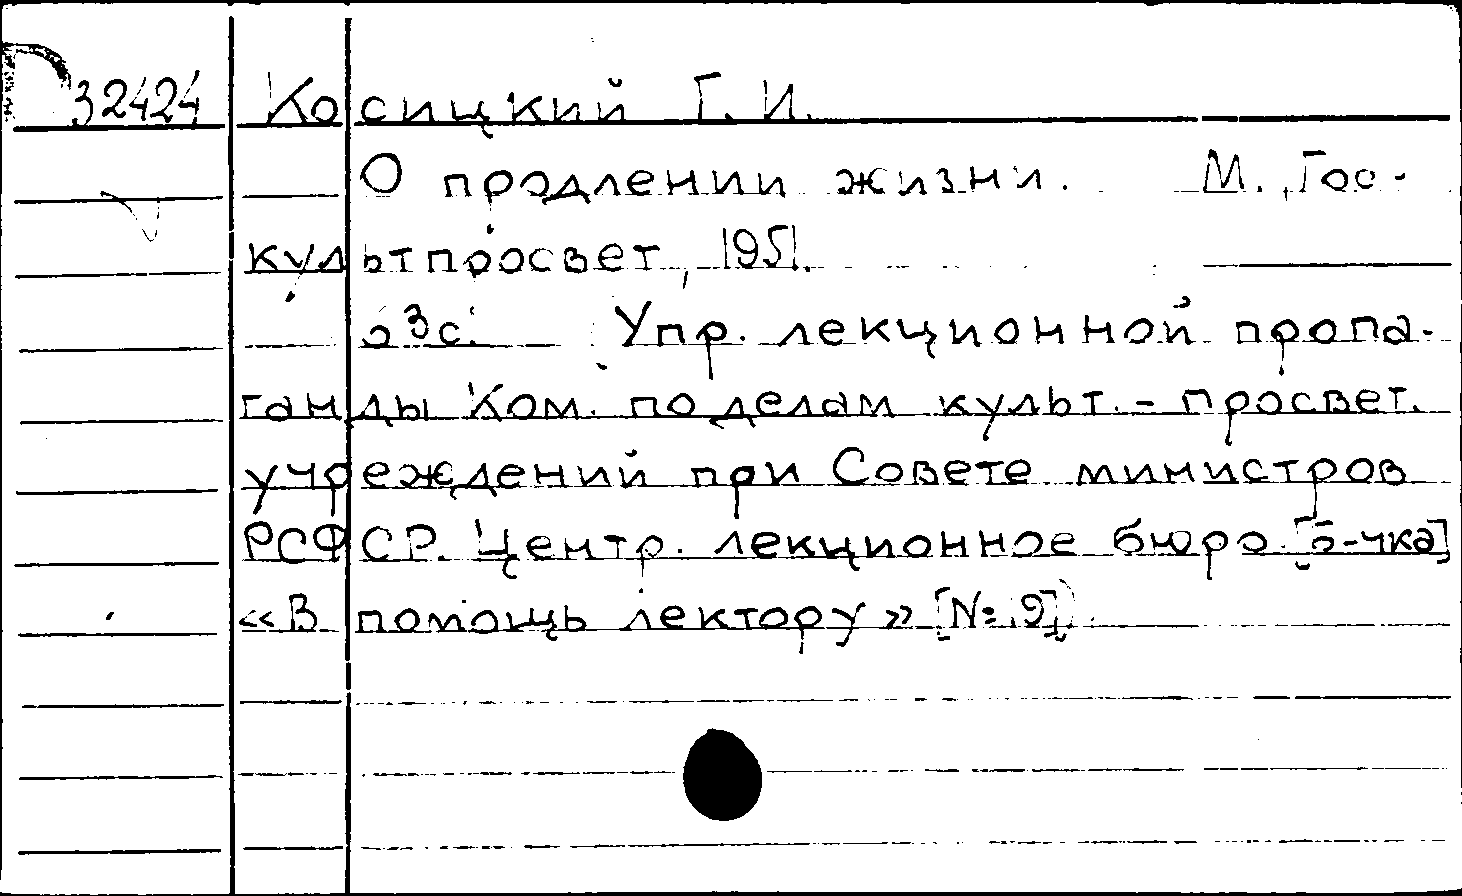 32424 Косицкий Г. И.
О продлении жизни. М., Гос-
культпросвет, 1951.
с. Упр. лекционной пропа-
ганды Ком. по делам культ.-просвет.
учреждений при Совете министров
РСФСР. Центр. лекционное бюро. [б-чка]
«В помощь лектору» [№ 9]